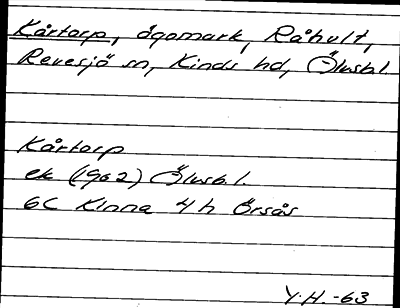 Kårtorp, ägomark, Råhult,
Revesjö sn, Kinds hd, Älvsbl.
Kårtorp
ek (1962) Älvsb.l.
6C Kinna 4h Örsås
Y.H.-63